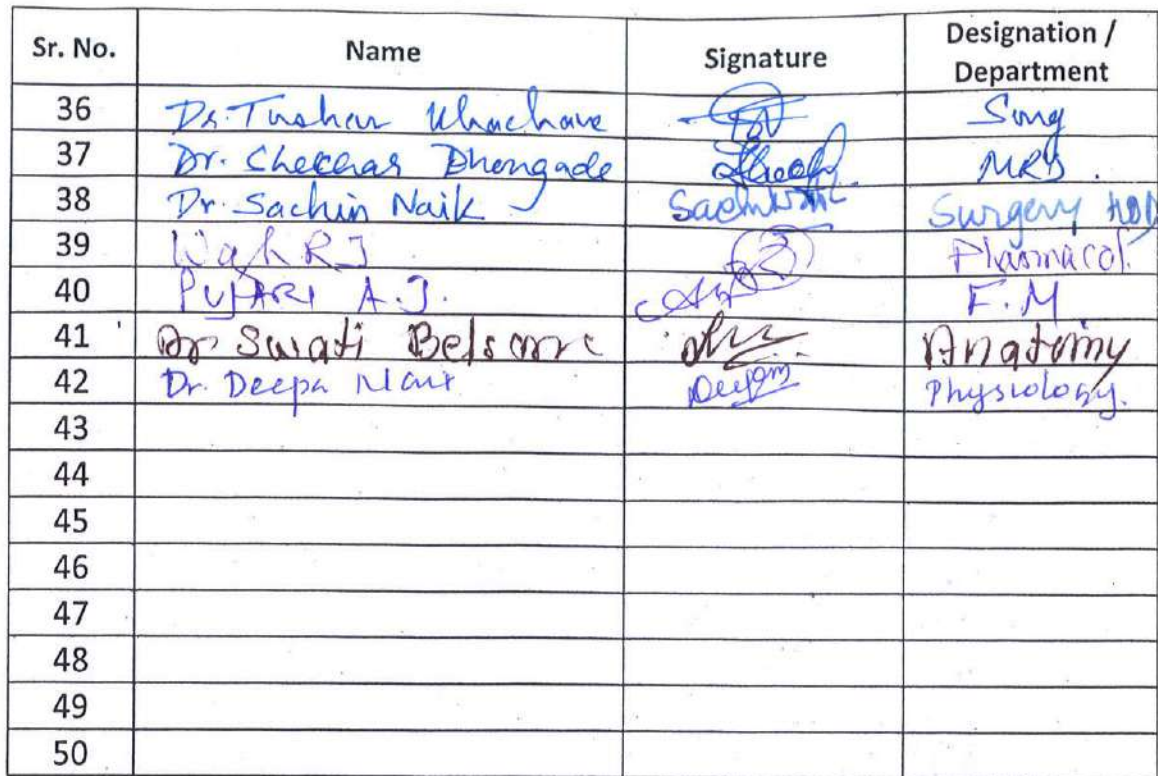 Sr. No. Name Signature Designation / Department
36 Dr. Tushar Khachane Surg
37 Dr. Shekhar Dhongade MRD.
38 Dr. Sachin Naik Surgery HOD
39 Wagh R J
40 PUJARI A.J. F.M
41 Dr Swati Belsare Anatomy
42 Dr. Deepa Nair Physiology.
43
44
45
46
47
48
49
50